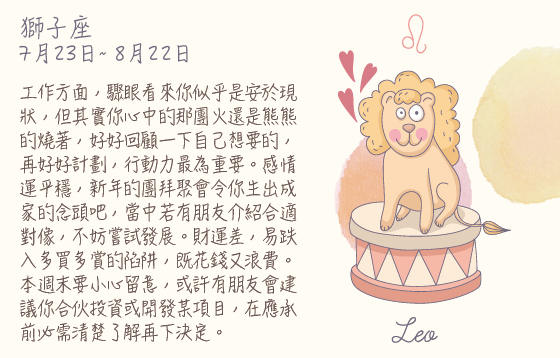 獅子座
7月23日~8月22日
工作方面，驟眼看來你似乎是安於現
狀，但其實你心中的那團火還是熊熊
的燒著，好好回顧一下自己想要的，
再好好計劃，行動力最為重要。感情
運平穩，新年的團拜聚會令你生出成
家的念頭吧，當中若有朋友介紹合適
對像，不妨嘗試發展。財運差，易跌
入多買多賞的陷阱，既花錢又浪費。
本週末要小心留意，或許有朋友會建
議你合伙投資或開發某項目，在應承
前必需清楚了解再下決定。
Leo